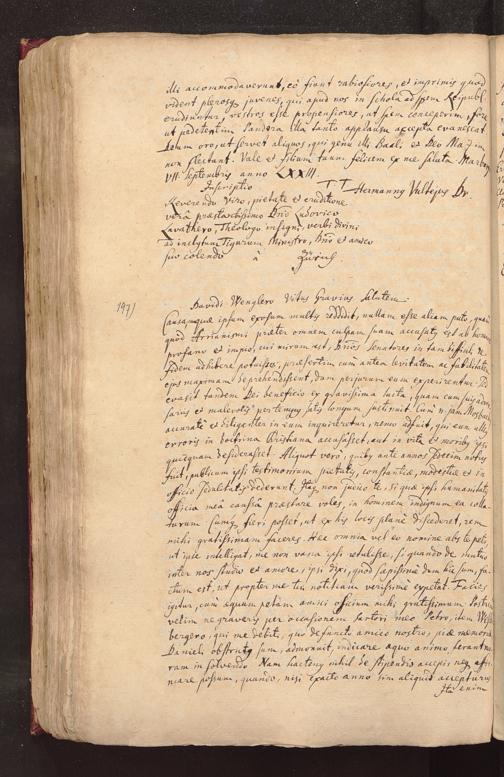 illi accommodaverunt, eò fiunt rabiosiores, et imprimis quod
vident plerosque juvenes, qui apud nos in schola ad spem Reipubl.
erudiuntur, vestros esse propensiores, ut spem conceperim, fore
ut pedetentim Pandora illa tanto applausu accepta evanescat.
Deum oro, ut servet aliquos, qui genu illi Baali, et Deo Ma
non flectant. Vale et filium tuum felicem ex me saluta. Marburg
VII. Septembris anno LXXIII.
T T Hermannus Vultejus Dr.
Inscriptio
Reverendo Viro, pietate et eruditione
verâ praestantissimo Dno Ludovico
Lavathero, Theologo insigni, verbi divini
ad inclytum Tigurum Ministro, Dno et amico
suo colendo à Zürich.
197)
Davidi Wenglero Vitus Gravius Salutem.
Causamque ipsum exosum multis reddidit, nullam esse aliam puto, quàm
quod Arrianismi praeter omnem culpam suam accusatus est ab homine
profano et impio, cui mirum est, Dnos Senatores in tam difficili re
fidem adhibere potuisse, praesertim cùm antea levitatem ac futilitatem
ejus maximam deprehendissent, dum perjurum eum experirentur.
evasit tandem Dei beneficio ex gravissima lucta, quam cum suis adver
sariis et malevolis per tempus satis longum sustinuit. Cùm n. jam Mosbach
accuratè et diligenter in eum inquireretur, nemo adfuit, qui eum alicujus
erroris in doctrina Christiana accusasset, aut in vita et moribus ipsi
quicquam desiderasset. Aliquot verò, quibus ante annos Decem notus
fuit, publicum ipsi testimonium pietatis, constantiae, modestiae et in
officio sedulitatis dederunt. Itaque non judico te, si quae ipsi humanitatis
officia meâ caussâ praestare voles, in hominem indignum ea colla
turum. Cumque fieri posset, ut ex his locis planè discederet, rem
mihi gratissimam faceres. Haec omnia vel eo nomine abs te peto,
ut ipse intelligat, me non vana ipsi retulisse, si quando de mutuo
inter nos studio et amore, ipsi dixi, quod saepissimè dum hîc sum, fa
ctum est, ut propter me tui notitiam verissimè expetat. Facies
igitur, cùm aequum petam amici officium mihi gratissimum
velim ne graveris per occasionem Sartori meo Petro, item
bergero, qui me debiti, quo defuncto amico nostro, piae memoriae
Danieli obstrictus sum, admonuit, indicare aequo animo ferant mo
ram in solvendo. Nam hactenus nihil de stipendio accepi neque affir
mare possum, quando, nisi exacto anno sim aliquid accepturus
Ita enim